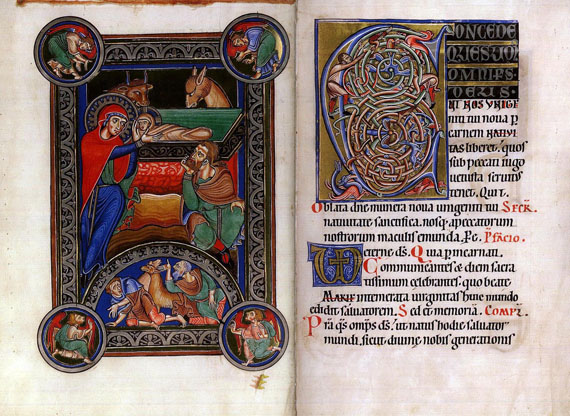 CONCEDE
QUESUM
OMNIPS
DEUS.
UT NOS UNIGE
niti tui noua p
carnem NATIVI
TAS liberet. quos
sub peccati iugo
uetusta seruitus
tenet. Qui t.
Oblata dne munera noua unigeniti tui SECR.
natiuitate sanctifica. nosq. apeccatorum
nostrorum maculis emunda. P. e. Pfacio.
eterne ds. Quia p incarnati.
Communicantes & diem sacra
tissimum celebrantes. quo beate
MARIE intemerata uirginitas huic mundo
edidit saluatorem. Sed et memoria. COMPL.
Pra qs omps ds. ut natus hodie saluator
mundi. sicut diuine nobis generationis